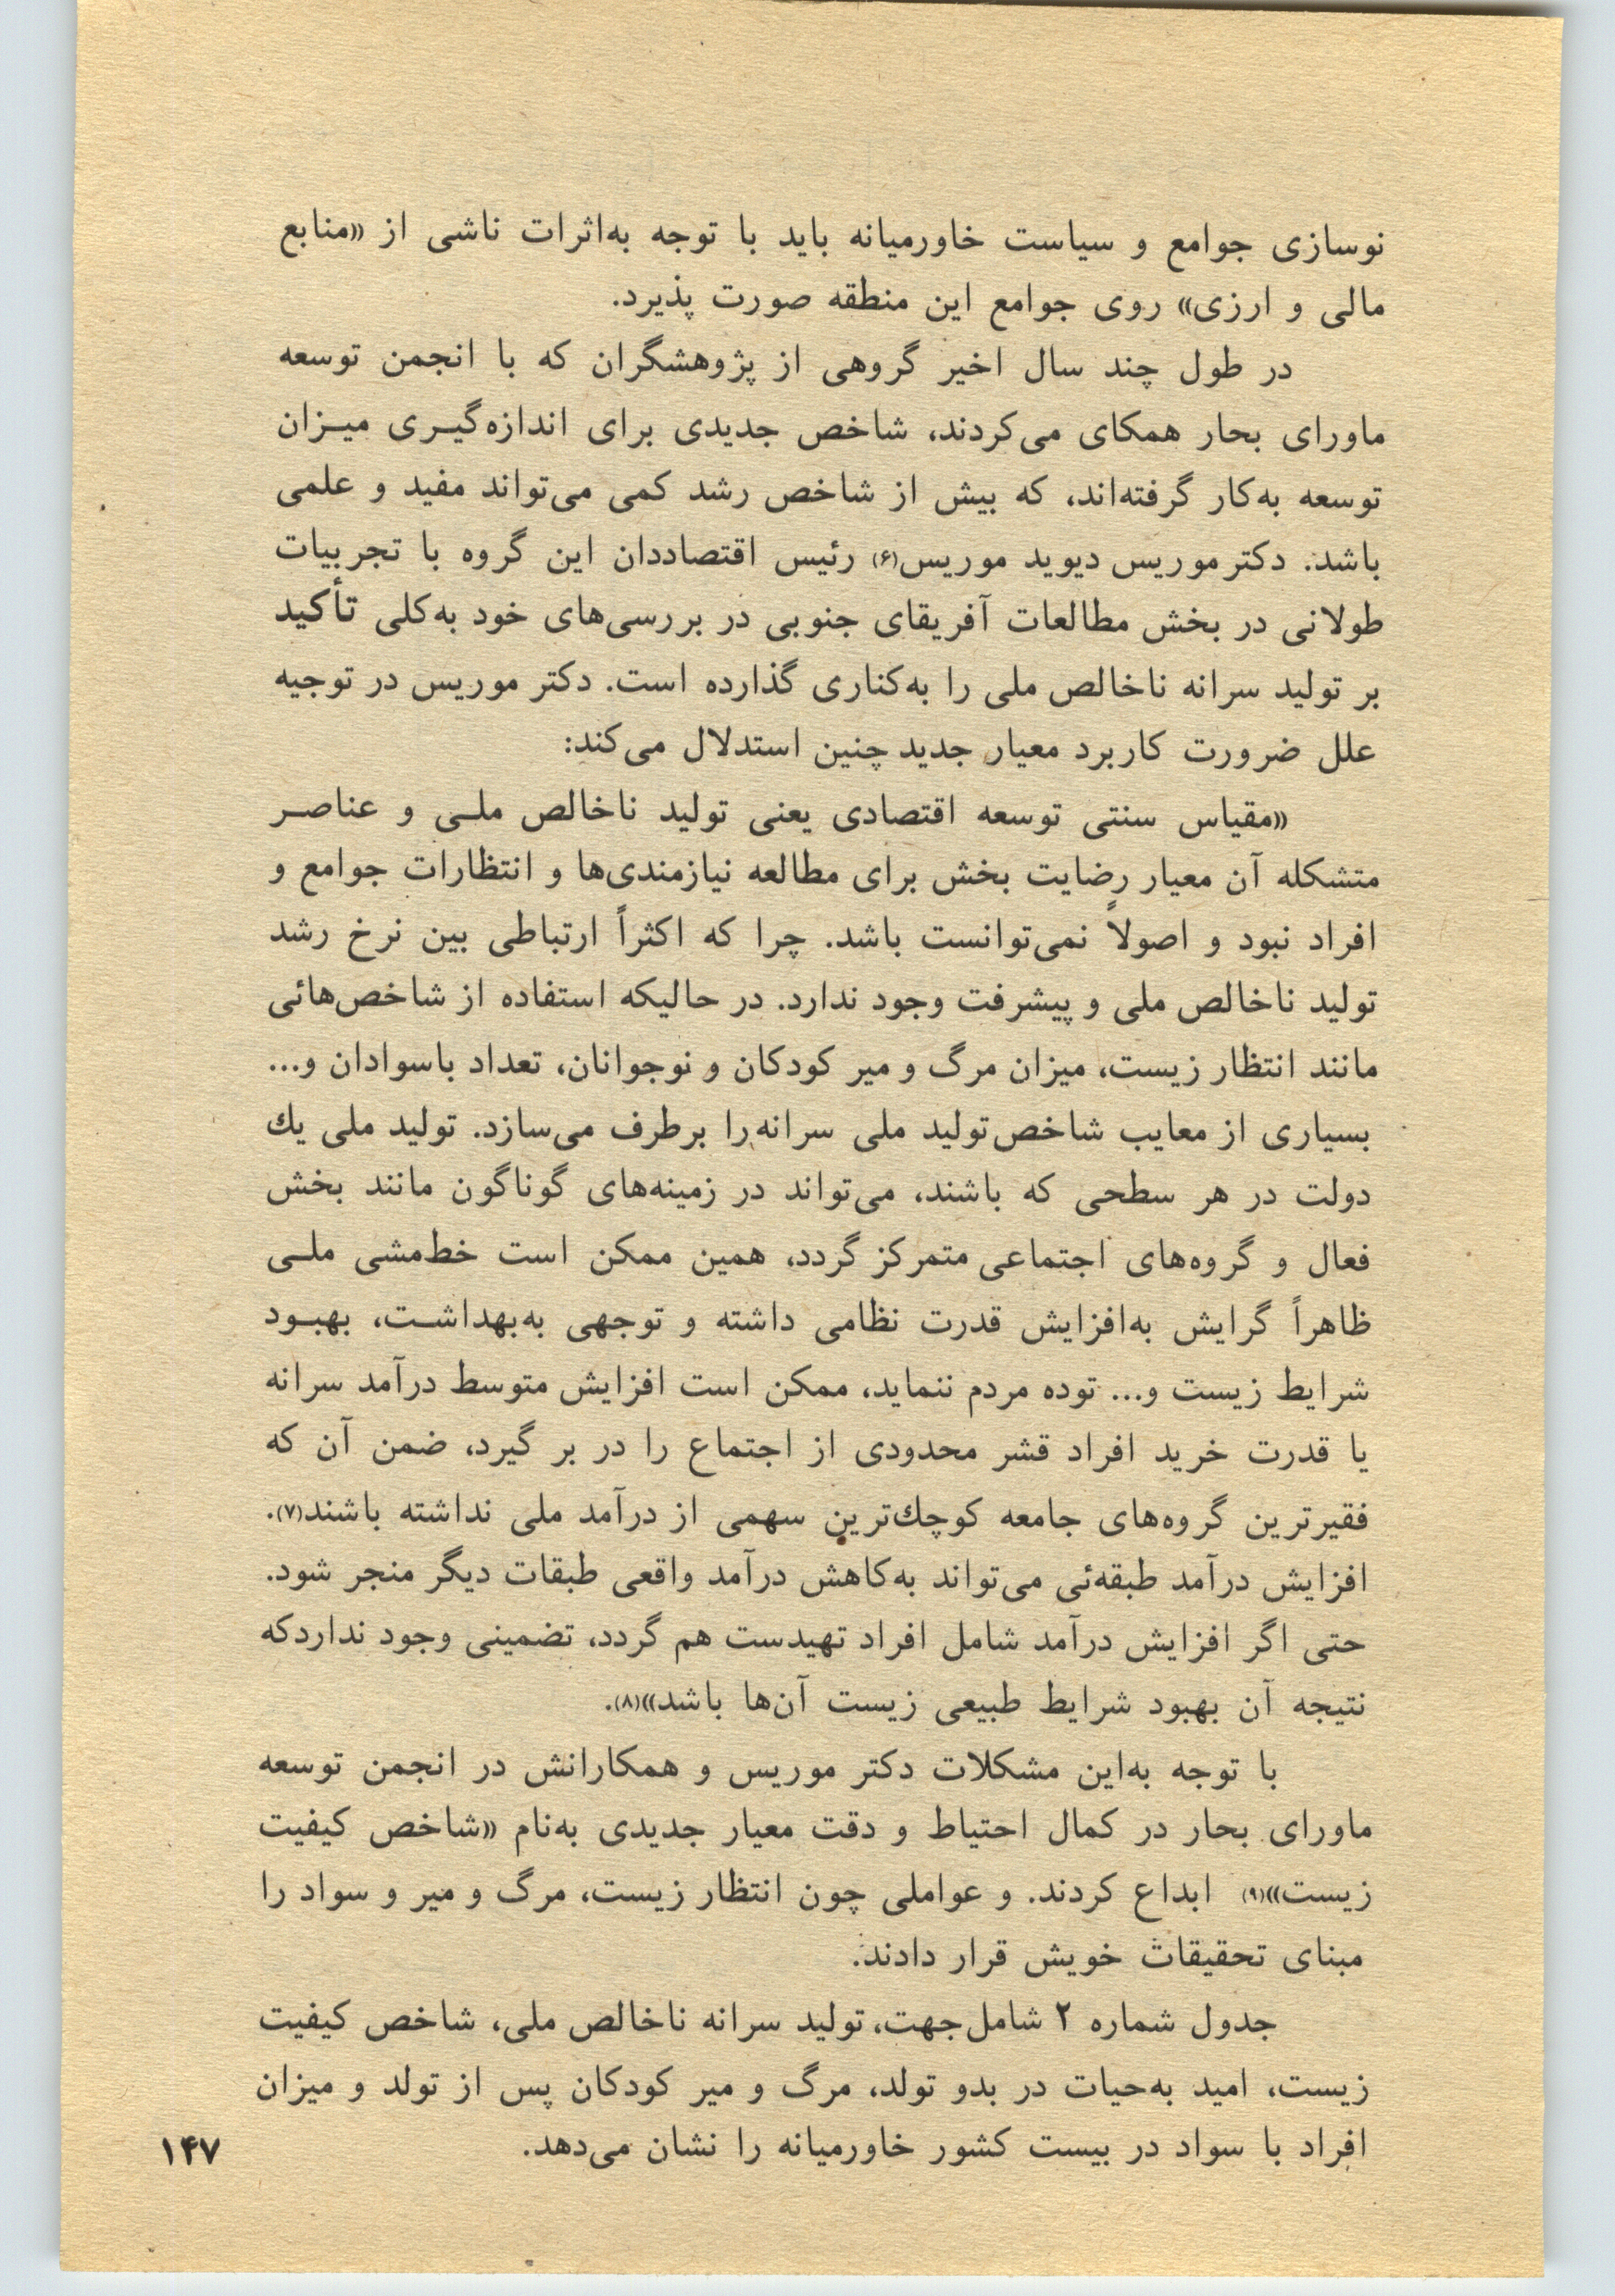 نوسازی جوامع و سیاست خاورمیانه باید با توجه به‌اثرات ناشی از «منابع
مالی و ارزی» روی جوامع این منطقه صورت پذیرد.
در طول چند سال اخیر گروهی از پژوهشگران که با انجمن توسعه
ماورای بحار همکای می‌کردند، شاخص جدیدی برای اندازه‌گیـری میـزان
توسعه به‌کار گرفته‌اند، که بیش از شاخص رشد کمی می‌تواند مفید و علمی
باشد. دکتر موریس دیوید موریس(۶) رئیس اقتصاددان این گروه با تجربیات
طولانی در بخش مطالعات آفریقای جنوبی در بررسی‌های خود به‌کلی تأکید
بر تولید سرانه ناخالص ملی را به‌کناری گذارده است. دکتر موریس در توجیه
علل ضرورت کاربرد معیار جدید چنین استدلال می‌کند:
«مقیاس سنتی توسعه اقتصادی یعنی تولید ناخالص ملـی و عناصـر
متشکله آن معیار رضایت بخش برای مطالعه نیازمندی‌ها و انتظارات جوامع و
افراد نبود و اصولاً نمی‌توانست باشد. چرا که اکثراً ارتباطی بین نرخ رشد
تولید ناخالص ملی و پیشرفت وجود ندارد. در حالیکه استفاده از شاخص‌هائی
مانند انتظار زیست، میزان مرگ و میر کودکان و نوجوانان، تعداد باسوادان و...
بسیاری از معایب شاخص تولید ملی سرانه را برطرف می‌سازد. تولید ملی یك
دولت در هر سطحی که باشند، می‌تواند در زمینه‌های گوناگون مانند بخش
فعال و گروه‌های اجتماعی متمرکز گردد، همین ممکن است خط‌مشی ملـی
ظاهراً گرایش به‌افزایش قدرت نظامی داشته و توجهی به‌بهداشـت، بهبـود
شرایط زیست و... توده مردم ننماید، ممکن است افزایش متوسط درآمد سرانه
یا قدرت خرید افراد قشر محدودی از اجتماع را در بر گیرد، ضمن آن که
فقیرترین گروه‌های جامعه کوچك‌ترین سهمی از درآمد ملی نداشته باشند(۷).
افزایش درآمد طبقه‌ئی می‌تواند به‌کاهش درآمد واقعی طبقات دیگر منجر شود.
حتی اگر افزایش درآمد شامل افراد تهیدست هم گردد، تضمینی وجود نداردکه
نتیجه آن بهبود شرایط طبیعی زیست آن‌ها باشد»(۸).
با توجه به‌این مشکلات دکتر موریس و همکارانش در انجمن توسعه
ماورای بحار در کمال احتیاط و دقت معیار جدیدی به‌نام «شاخص کیفیت
زیست»(۹) ابداع کردند. و عواملی چون انتظار زیست، مرگ و میر و سواد را
مبنای تحقیقات خویش قرار دادند.
جدول شماره ۲ شامل جهت، تولید سرانه ناخالص ملی، شاخص کیفیت
زیست، امید به‌حیات در بدو تولد، مرگ و میر کودکان پس از تولد و میزان
افراد با سواد در بیست کشور خاورمیانه را نشان می‌دهد.
۱۴۷